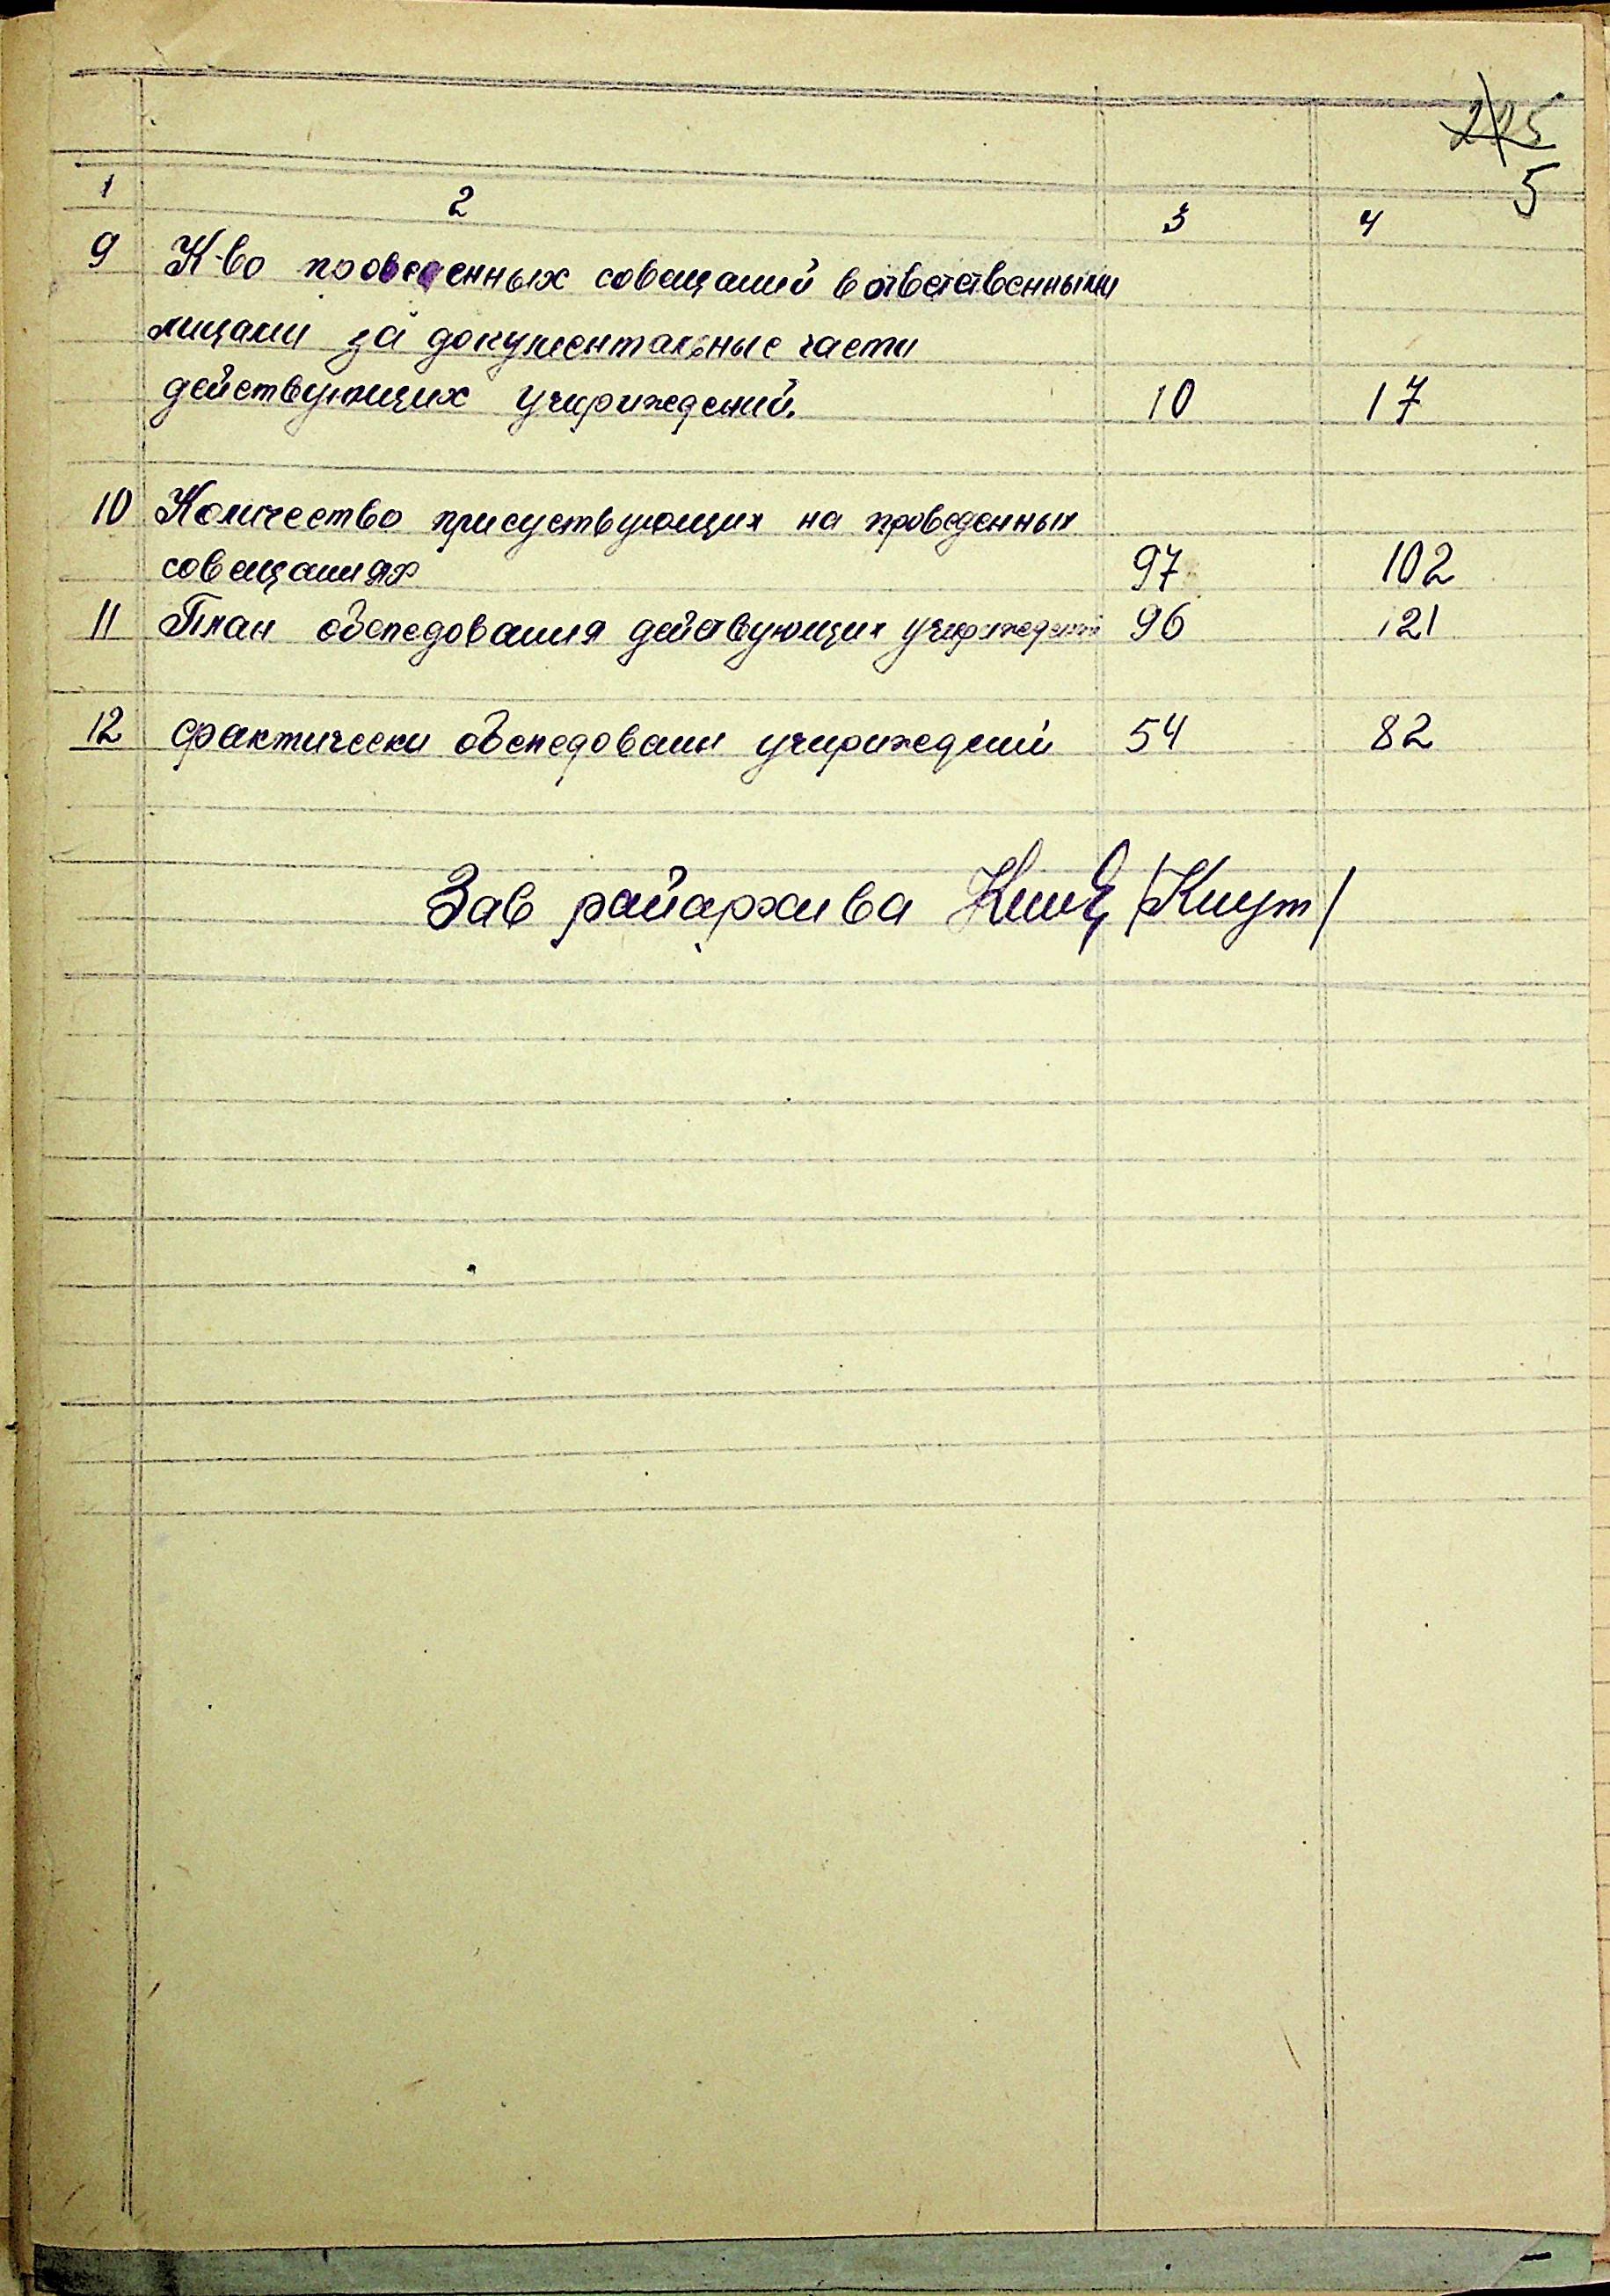 225
5
1 2 3 4
9 К-во проведенных совещаний в ответственными
лицами за документальные части
действующих учириждений. 10 17
10 Количество присуствующих на проведенных
совещаниях 97 102
11 План обследования действующих учириждений 96 121
12 фактически обследованы учириждений 54 82
Зав райархива /Кнут/